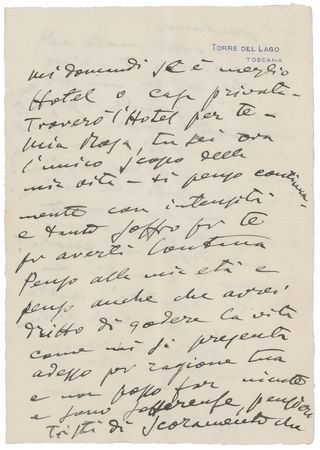 TORRE DEL LAGO
TOSCANA
mi domandi se è meglio
Hotel o casa privata -
Troverò l'Hotel per te -
Mia Rosa, tu sei ora
l'unico scopo della
mia vita - ti penso continua-
mente con intensità
e tanto soffro per te
per averti lontana
Penso alla mia età e
penso anche che avrei
dritto di godere la vita
come mi si presenta
adesso per ragione tua
e non posso far niente
e sono sofferenze, pensieri
tristi di scoramento che